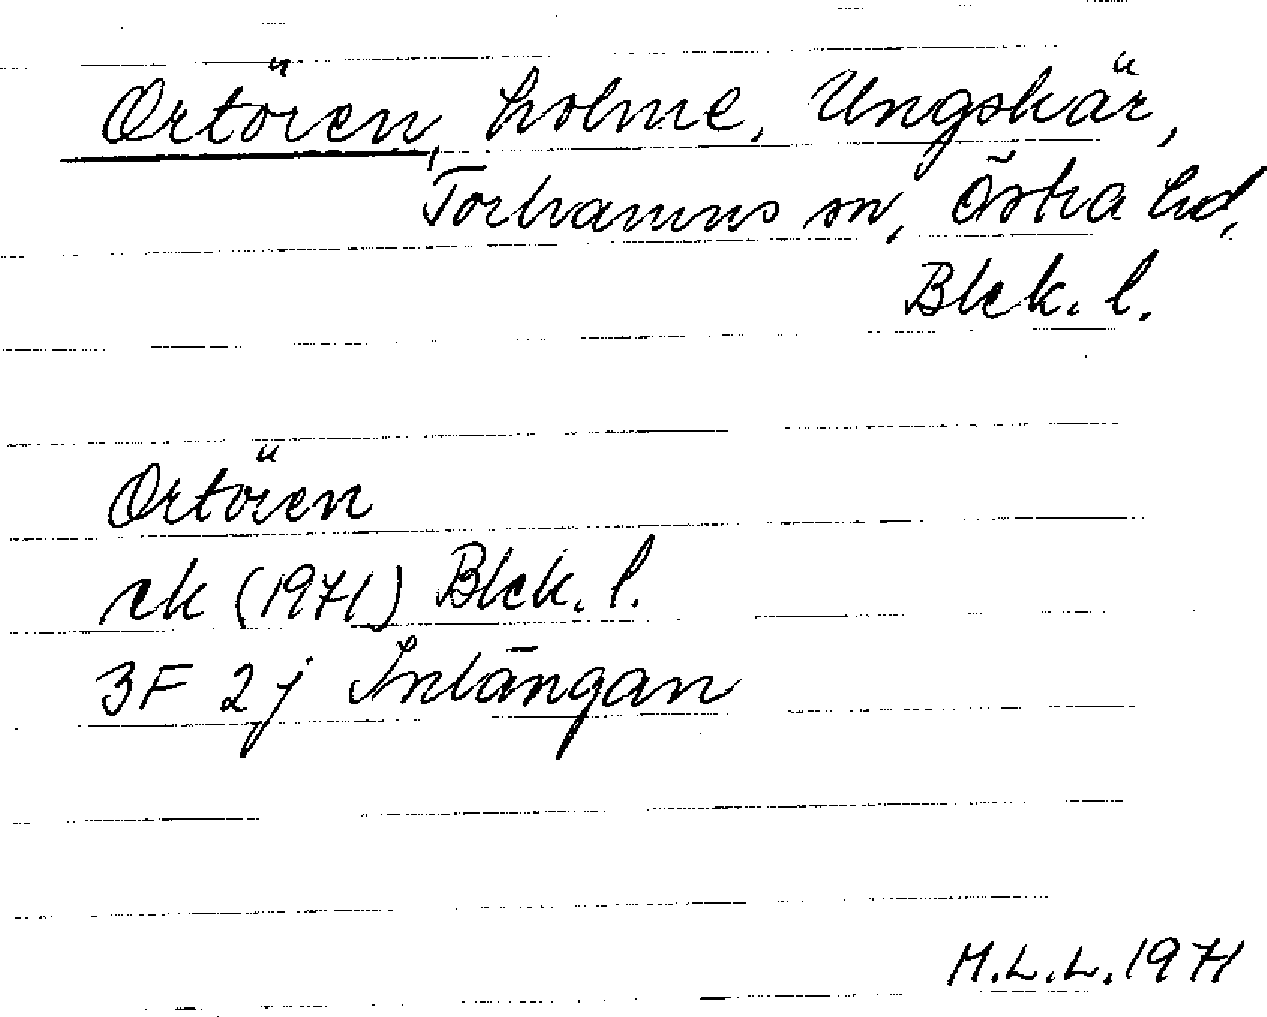 Ortören, holme, Ungskär,
Torhamns sn, Östra hd,
Blek. l.
Ortören
rk (1971) Blek. l.
3F 2j Inlängan
M.L.L. 1971